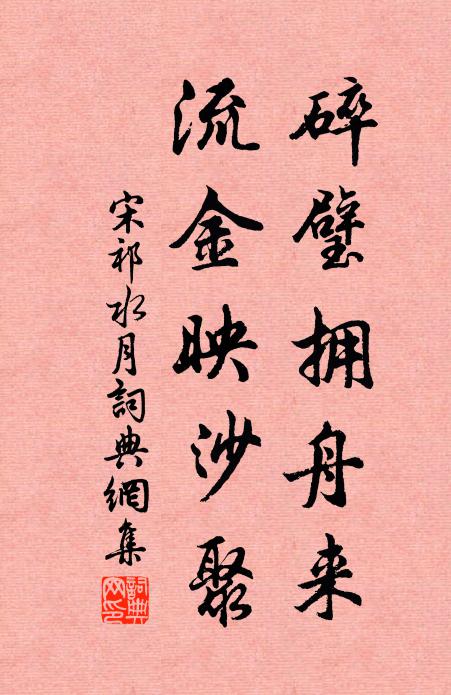 碎璧拥舟来
流金映沙聚
宋祁水月詞典網集
詞典網印